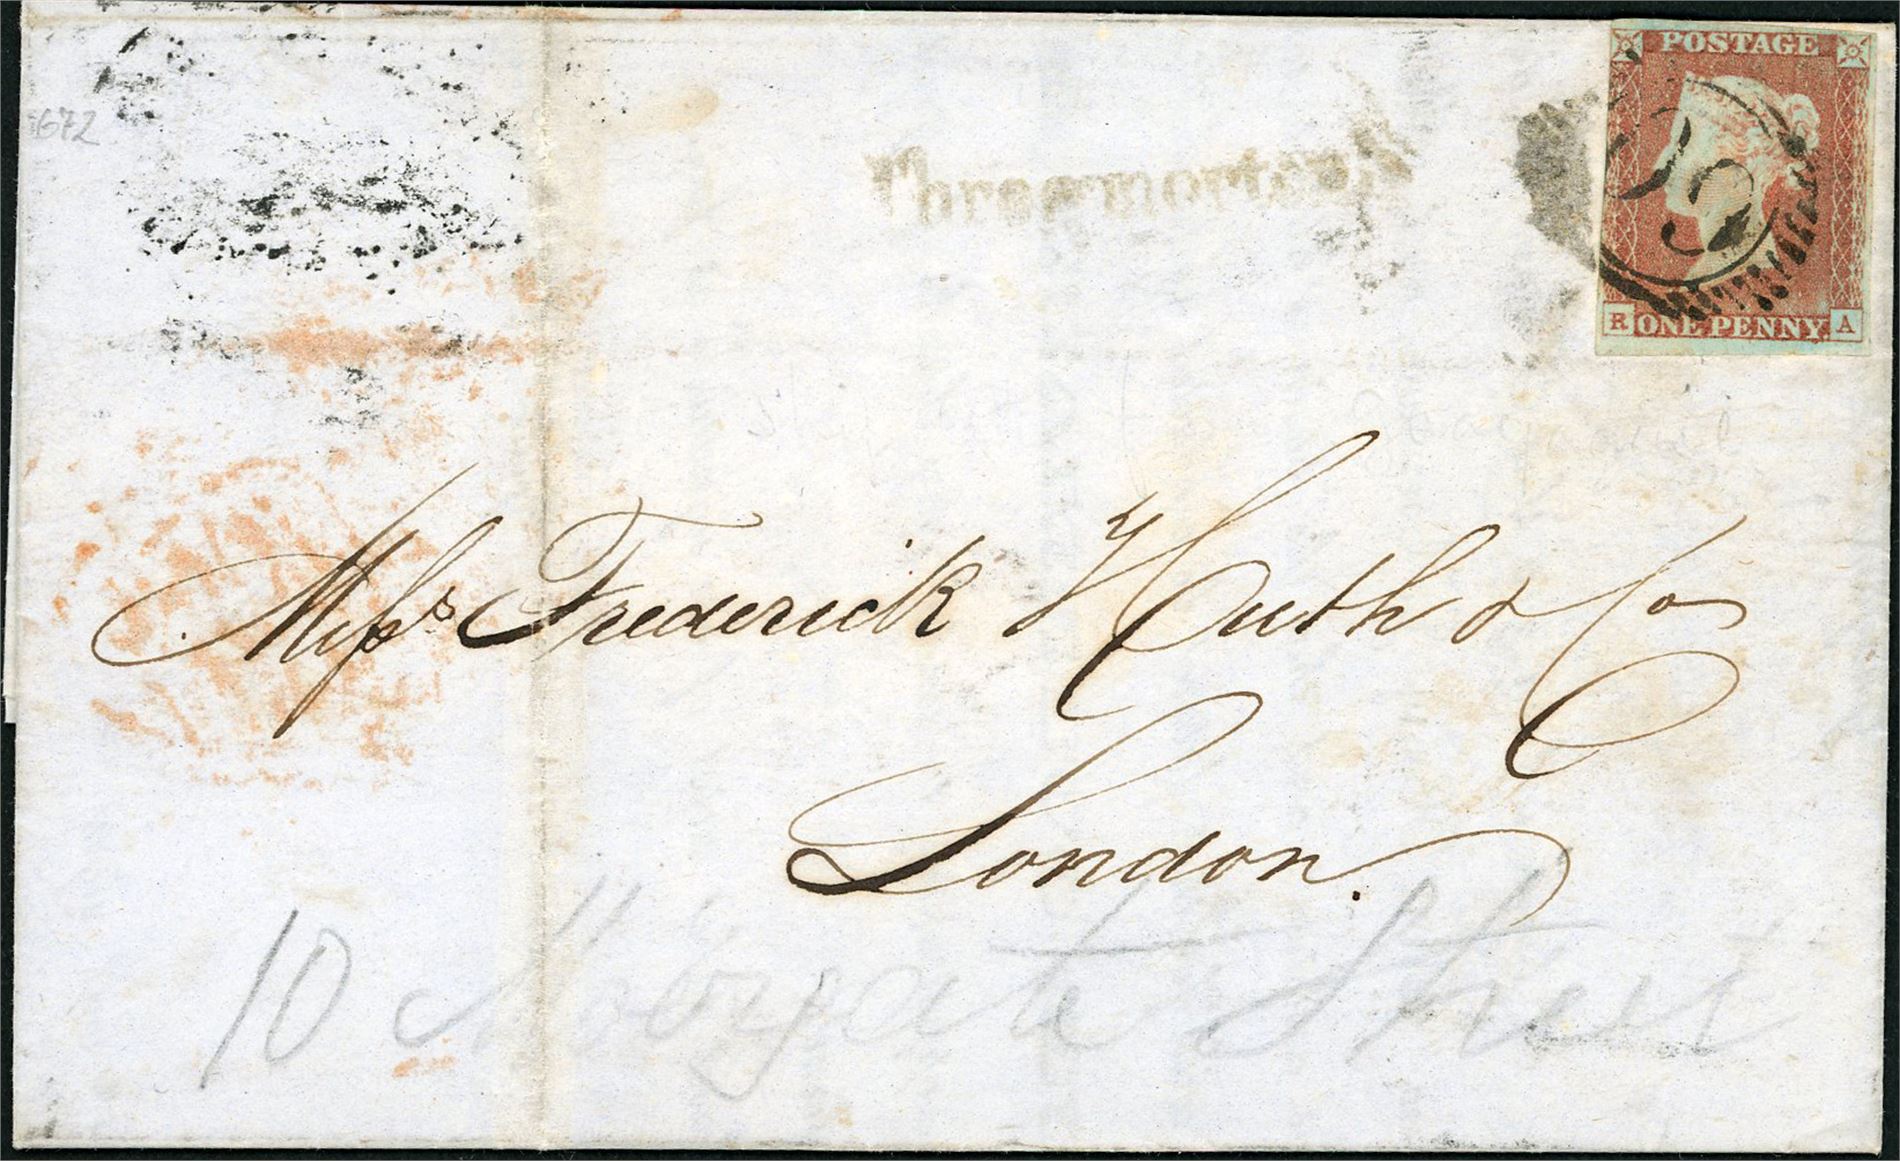 672
POSTAGE
R ONE PENNY A
Messrs Frederick Huth & Co
London.
10 Moorgate Street